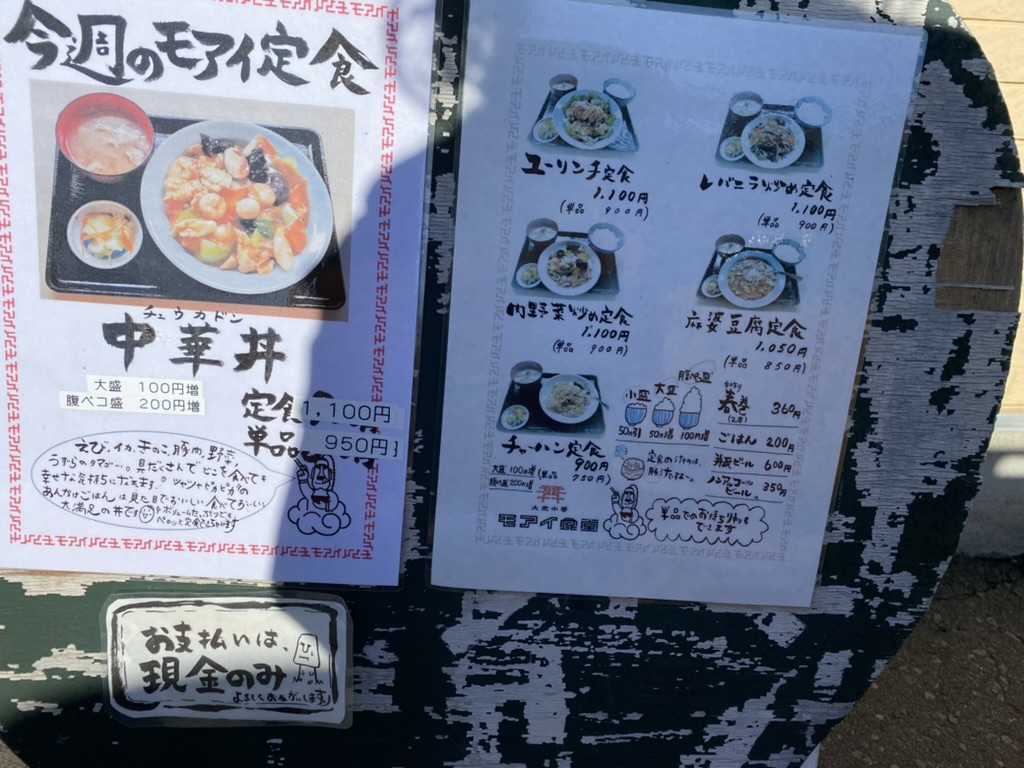 今週のモアイ定食
チュウカドン
中華丼
大盛 100円増
腹ペコ盛 200円増
定食 1,100円
単品 950円
えび、イカ、きのこ、豚肉、野菜、
うずらのタマゴ…。具だくさんでどこを食べても
幸せな気持ちになれます。ツヤツヤピカピカの
あんかけごはんは見た目でおいしい食べておいしい
大満足の丼です
ペロッと定食
お支払いは、
現金のみ
よろしくおねがいします。
ユーリンチ定食
1,100円
(単品 900円)
レバニラ炒め定食
1,100円
(単品 900円)
肉野菜炒め定食
1,100円
(単品 900円)
麻婆豆腐定食
1,050円
(単品 850円)
チャーハン定食
900円
大盛 100円増
腹ペコ盛 200円増
(単品 750円)
小盛 大盛 腹ペコ盛
50円引 50円増 100円増
春巻 360円
ごはん 200円
瓶ビール 600円
ノンアルコールビール 350円
単品でのお持ち帰りも
できます
モアイ食堂